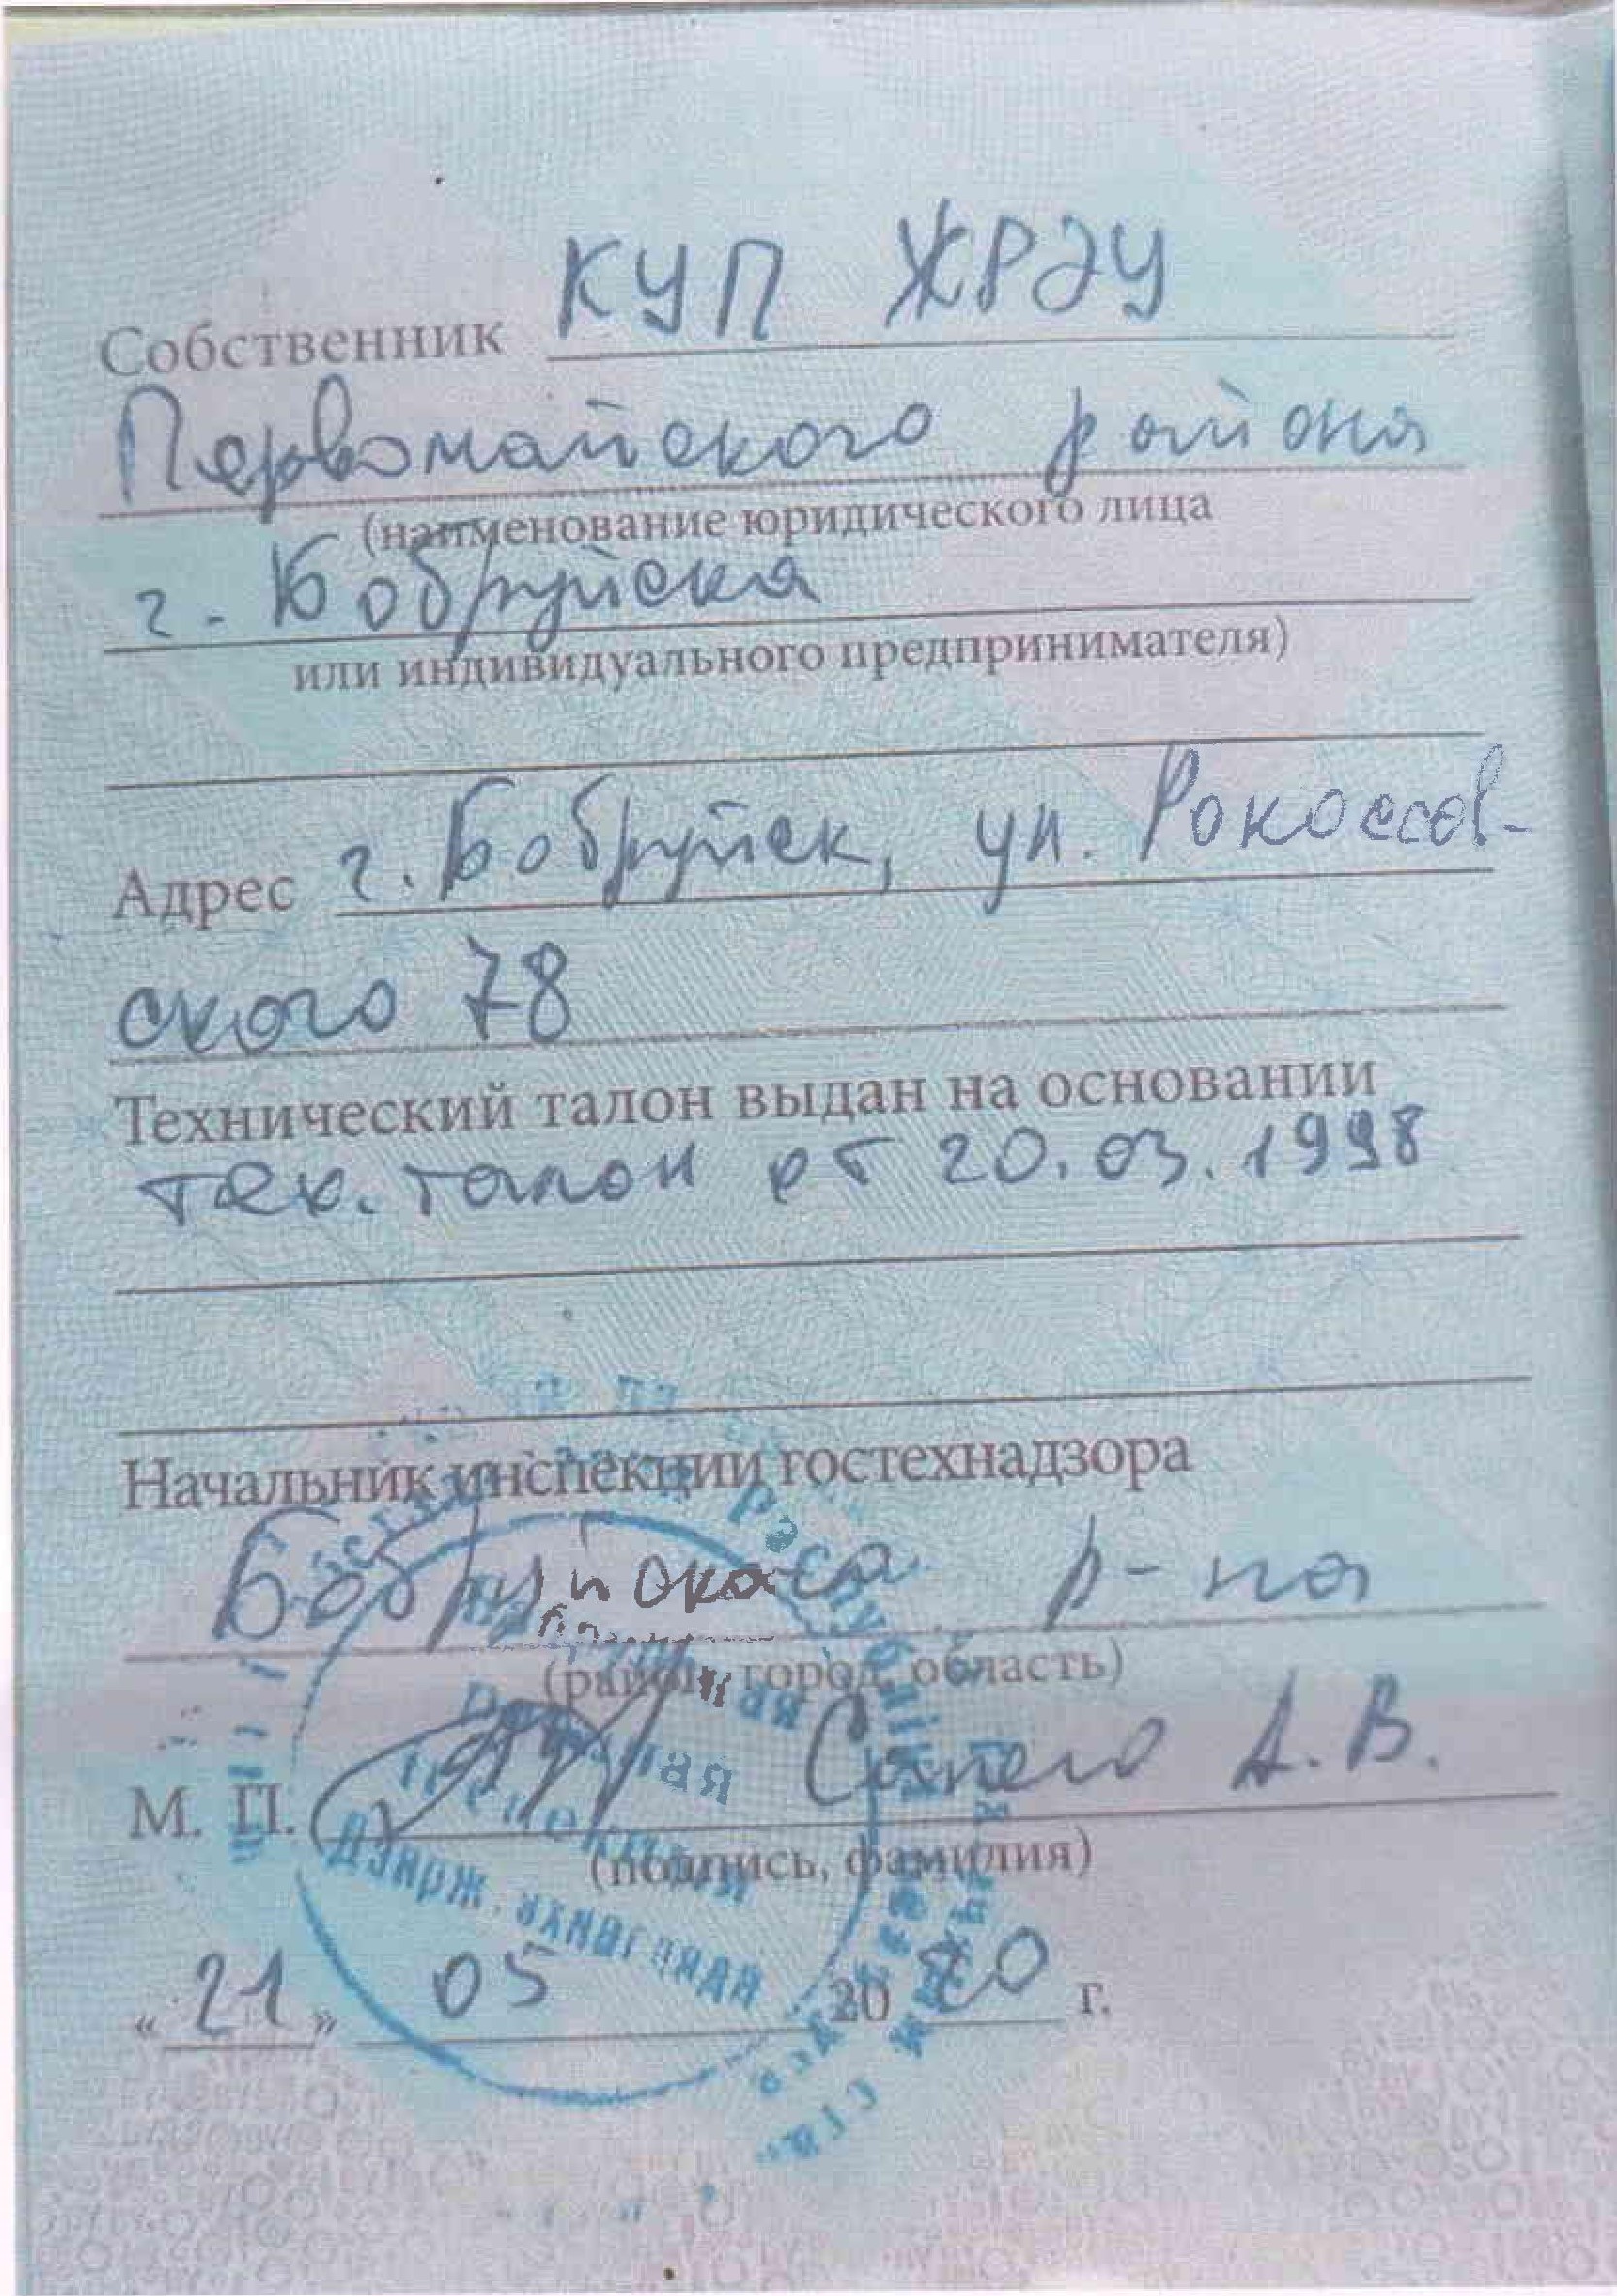 Собственник КУП ЖРЭУ
Первомайского района
(наименование юридического лица
г. Бобруйска
или индивидуального предпринимателя)
Адрес г. Бобруйск, ул. Рокоссов-
ского 78
Технический талон выдан на основании
тех. талон от 20.03.1998
Начальник инспекции гостехнадзора
р-на
(район, город, область)
М. П. А. В.
(подпись, фамилия)
„21” 05 2020 г.